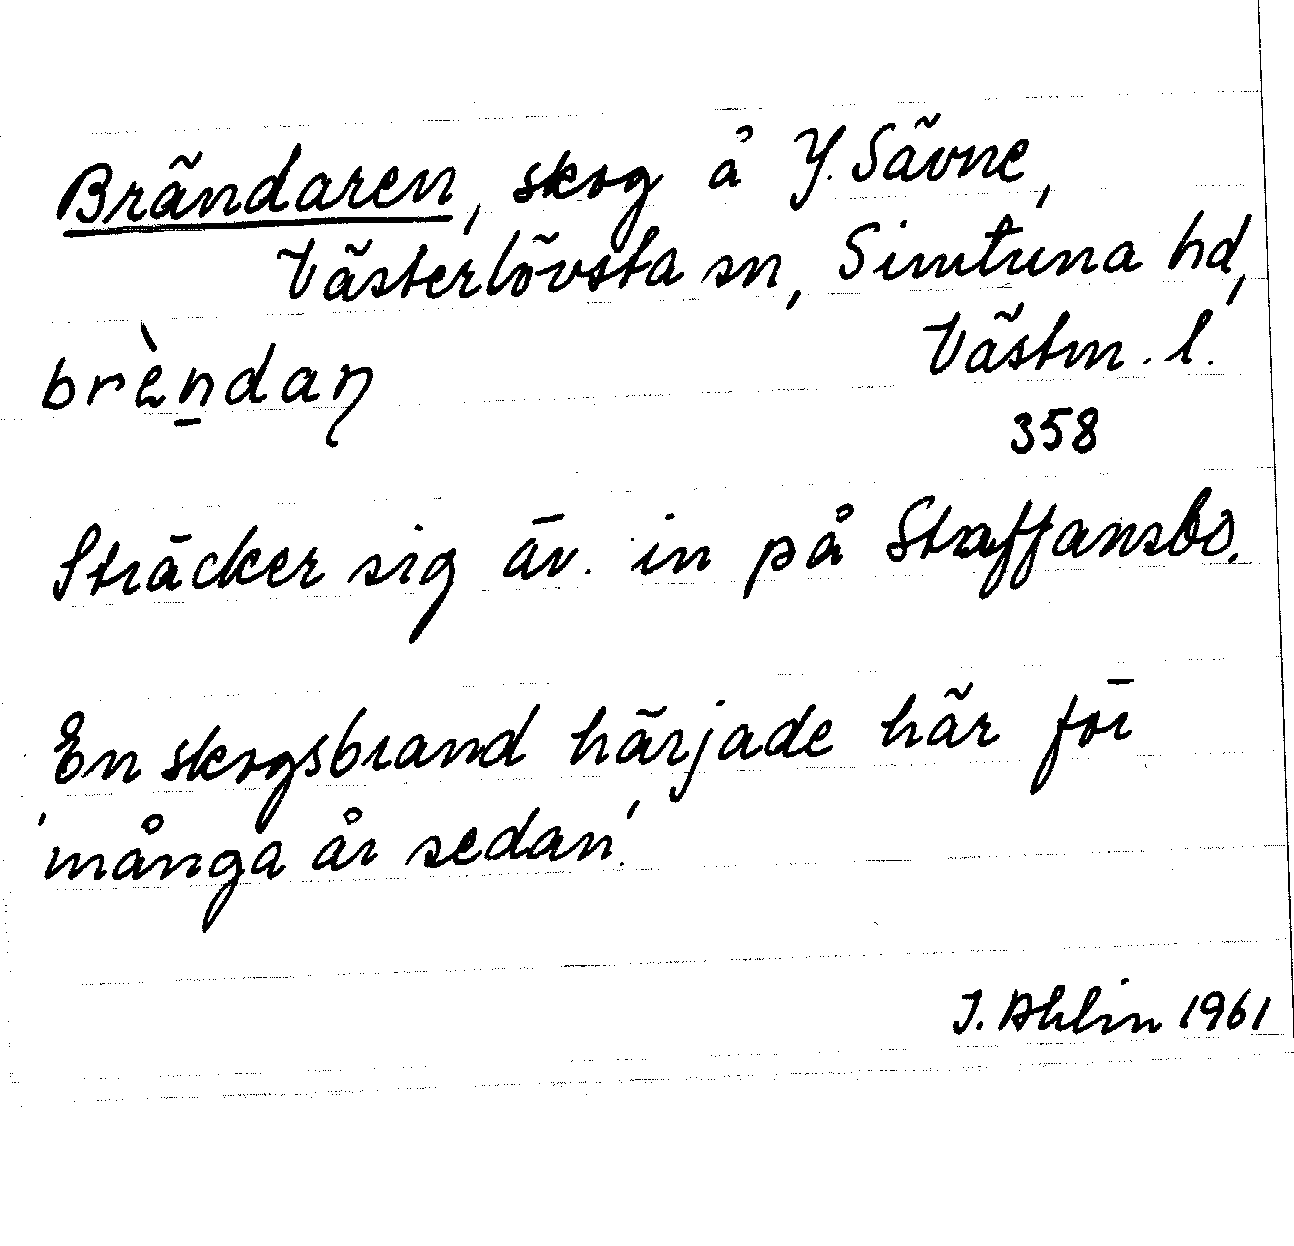 Brändaren, skog å Y. Sävne,
Västerlövsta sn, Simtuna hd,
Västm. l.
brèn̠daɳ
358
Sträcker sig äv. in på Staffansbo.
En skogsbrand härjade här för
'många år sedan'.
I. Ahlin 1961